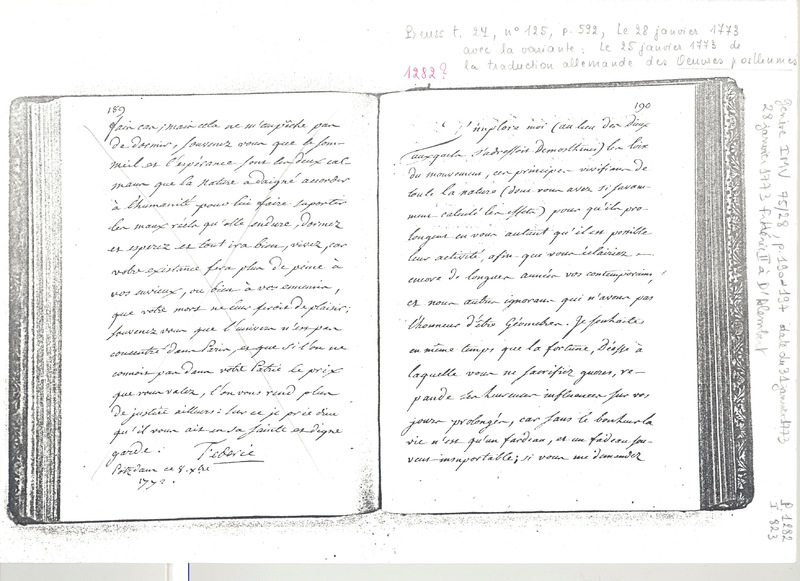 Preuss t. 24, n° 125, p. 592, le 28 janvier 1773
avec la variante : le 25 janvier 1773 de
la traduction allemande des Oeuvres posthumes
1282?
189
faire cas; mais cela ne m'empêche pas
de dormir, souvenez vous que le som-
meil et l'espérance sont les deux cal
mans que la Nature a daigné accorder
à l'humanité pour lui faire suporter
les maux réels qu'elle endure, dormez
et esperez et tout ira bien, vivez, car
votre existance fera plus de peine à
vos envieux, ou bien à vos ennemis,
que votre mort ne leur feroit de plaisir;
souvenez vous que l'univers n'est pas
concentré dans Paris, et que si l'on ne
connoit pas dans votre Patrie le prix
que vous valez, l'on vous rend plus
de justice ailleurs: Sur ce je prie dieu
qu'il vous ait en sa sainte et digne
garde. Féderic
Potzdam ce 8. Xbre
1772.
190
J'implore moi (au lieu des Dieux
auxquels s'adressoit Demosthène) les loix
du mouvement, ces principes vivifians de
toute la nature (dont vous avez si savam-
ment calculé les effets) pour qu'ils pro-
longent en vous autant qu'il est possible
leur activité, afin que vous éclairiez
encore de longues années vos contemporains,
et nous autres ignorans qui n'avons pas
l'honneur d'être Géometres. Je souhaite
en même temps que la fortune, Déesse à
laquelle vous ne sacrifiez gueres, re-
pande ses heureuses influences sur vos
jours prolongés, car sans le bonheur la
vie n'est qu'un fardeau, et un fardeau sou-
vent insuportable; si vous me demandez
Genève IMV 75/28, p. 190-197 daté du 31 janvier 1773
28 janvier 1773 Frédéric II à D'Alembert
P 1282
I 823